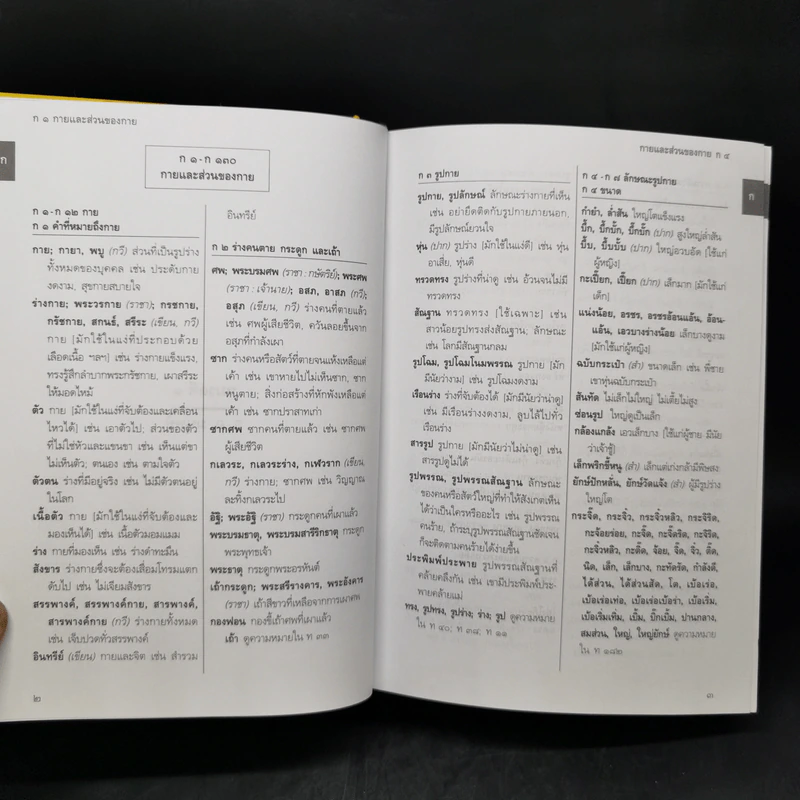 ก ๑ กายและส่วนของกาย
ก
ก ๑-ก ๑๓๐
กายและส่วนของกาย
ก ๑-ก ๑๒ กาย
ก ๑ คำที่หมายถึงกาย
กาย; กายา, พบู (กวี) ส่วนที่เป็นรูปร่าง
ทั้งหมดของบุคคล เช่น ประดับกาย
งดงาม, สุขกายสบายใจ
ร่างกาย; พระวรกาย (ราชา); กรชกาย,
กรัชกาย, สกนธ์, สรีระ (เขียน, กวี)
กาย [มักใช้ในแง่ที่ประกอบด้วย
เลือดเนื้อ ฯลฯ] เช่น ร่างกายแข็งแรง,
ทรงรู้สึกลำบากพระกรัชกาย, เผาสรีระ
ให้มอดไหม้
ตัว กาย [มักใช้ในแง่ที่จับต้องและเคลื่อน
ไหวได้] เช่น เอาตัวไป; ส่วนของตัว
ที่ไม่ใช่หัวและแขนขา เช่น เห็นแต่ขา
ไม่เห็นตัว; ตนเอง เช่น ตามใจตัว
ตัวตน ร่างที่มีอยู่จริง เช่น ไม่มีตัวตนอยู่
ในโลก
เนื้อตัว กาย [มักใช้ในแง่ที่จับต้องและมอง
เห็นได้] เช่น เนื้อตัวมอมแมม
ร่าง กายที่มองเห็น เช่น ร่างดำทะมึน
สังขาร ร่างกายซึ่งจะต้องเสื่อมโทรมแตก
ดับไป เช่น ไม่เจียมสังขาร
สรรพางค์, สรรพางค์กาย, สารพางค์,
สารพางค์กาย (กวี) ร่างกายทั้งหมด
เช่น เจ็บปวดทั่วสรรพางค์
อินทรีย์ (เขียน) กายและจิต เช่น สำรวม
อินทรีย์
ก ๒ ร่างคนตาย กระดูก และเถ้า
ศพ; พระบรมศพ (ราชา : กษัตริย์); พระศพ
(ราชา : เจ้านาย); อสภ, อาสภ (กวี);
อสุภ (เขียน, กวี) ร่างคนที่ตายแล้ว
เช่น ศพผู้เสียชีวิต, ควันลอยขึ้นจาก
อสุภที่กำลังเผา
ซาก ร่างคนหรือสัตว์ที่ตายจนแห้งเหลือแต่
เค้า เช่น เขาหายไปไม่เห็นซาก, ซาก
หนูตาย; สิ่งก่อสร้างที่หักพังเหลือแต่
เค้า เช่น ซากปราสาทเก่า
ซากศพ ซากคนที่ตายแล้ว เช่น ซากศพ
ผู้เสียชีวิต
กเลวระ, กเลวระร่าง, กเฬวราก (เขียน,
กวี) ร่างกาย; ซากศพ เช่น วิญญาณ
ละทิ้งกเลวระไป
อัฐิ; พระอัฐิ (ราชา) กระดูกคนที่เผาแล้ว
พระบรมธาตุ, พระบรมสารีริกธาตุ กระดูก
พระพุทธเจ้า
พระธาตุ กระดูกพระอรหันต์
เถ้ากระดูก; พระสรีรางคาร, พระอังคาร
(ราชา) เถ้าสีขาวที่เหลือจากการเผาศพ
กองฟอน กองขี้เถ้าศพที่เผาแล้ว
เถ้า ดูความหมายใน ท ๓๓
๒
กายและส่วนของกาย ก ๔
ก
ก ๓ รูปกาย
รูปกาย, รูปลักษณ์ ลักษณะร่างกายที่เห็น
เช่น อย่ายึดติดกับรูปกายภายนอก,
มีรูปลักษณ์ยวนใจ
หุ่น (ปาก) รูปร่าง [มักใช้ในแง่ดี] เช่น หุ่น
อาเสี่ย, หุ่นดี
ทรวดทรง รูปร่างที่น่าดู เช่น อ้วนจนไม่มี
ทรวดทรง
สัณฐาน ทรวดทรง [ใช้เฉพาะ] เช่น
สาวน้อยรูปทรงส่งสัณฐาน; ลักษณะ
เช่น โลกมีสัณฐานกลม
รูปโฉม, รูปโฉมโนมพรรณ รูปกาย [มัก
มีนัยว่างาม] เช่น รูปโฉมงดงาม
เรือนร่าง ร่างที่จับต้องได้ [มักมีนัยว่าน่าดู]
เช่น มีเรือนร่างงดงาม, ลูบไล้ไปทั่ว
เรือนร่าง
สารรูป รูปกาย [มักมีนัยว่าไม่น่าดู] เช่น
สารรูปดูไม่ได้
รูปพรรณ, รูปพรรณสัณฐาน ลักษณะ
ของคนหรือสัตว์ใหญ่ที่ทำให้สังเกตเห็น
ได้ว่าเป็นใครหรืออะไร เช่น รูปพรรณ
คนร้าย, ถ้าระบุรูปพรรณสัณฐานชัดเจน
ก็จะติดตามคนร้ายได้ง่ายขึ้น
ประพิมพ์ประพาย รูปพรรณสัณฐานที่
คล้ายคลึงกัน เช่น เขามีประพิมพ์ประ-
พายคล้ายแม่
ทรง, รูปทรง, รูปร่าง; ร่าง; รูป ดูความหมาย
ใน ท ๔๐; ท ๓๘; ท ๑๑
ก ๔-ก ๗ ลักษณะรูปกาย
ก ๔ ขนาด
กำยำ, ล่ำสัน ใหญ่โตแข็งแรง
บึ้ก, บึ้กบั้ก, บึ้กบึ้ก (ปาก) สูงใหญ่ล่ำสัน
บึ้บ, บึ้บบั้บ (ปาก) ใหญ่อวบอัด [ใช้แก่
ผู้หญิง]
กะเปี๊ยก, เปี๊ยก (ปาก) เล็กมาก [มักใช้แก่
เด็ก]
แน่งน้อย, อรชร, อรชรอ้อนแอ้น, อ้อน-
แอ้น, เอวบางร่างน้อย เล็กบางดูงาม
[มักใช้แก่ผู้หญิง]
ฉบับกระเป๋า (สำ) ขนาดเล็ก เช่น พี่ชาย
เขาหุ่นฉบับกระเป๋า
สันทัด ไม่เล็กไม่ใหญ่ ไม่เตี้ยไม่สูง
ซ่อนรูป ใหญ่ดูเป็นเล็ก
กล้องแกล้ง เอวเล็กบาง [ใช้แก่ผู้ชาย มีนัย
ว่าเจ้าชู้]
เล็กพริกขี้หนู (สำ) เล็กแต่เก่งกล้ามีพิษสง
ยักษ์ปักหลั่น, ยักษ์วัดแจ้ง (สำ) ผู้มีรูปร่าง
ใหญ่โต
กระจิ๊ด, กระจิ๋ว, กระจิ๋วหลิว, กระจิริด,
กะจ้อยร่อย, กะจี๊ด, กะจิ๊ดริด, กะจิ๋ว,
กะจิ๋วหลิว, กะตี๊ด, จ้อย, จิ๊ด, จิ๋ว, ตี๊ด,
นิด, เล็ก, เล็กบาง, กะทัดรัด, กำลังดี,
ได้ส่วน, ได้ส่วนสัด, โต, เบ้อเร่อ,
เบ้อเร่อเท่อ, เบ้อเร่อเบ้อร่า, เบ้อเริ่ม,
เบ้อเริ่มเทิ่ม, เบิ้ม, บิ๊กเบิ้ม, ปานกลาง,
สมส่วน, ใหญ่, ใหญ่ยักษ์ ดูความหมาย
ใน ท ๑๘๒
๓